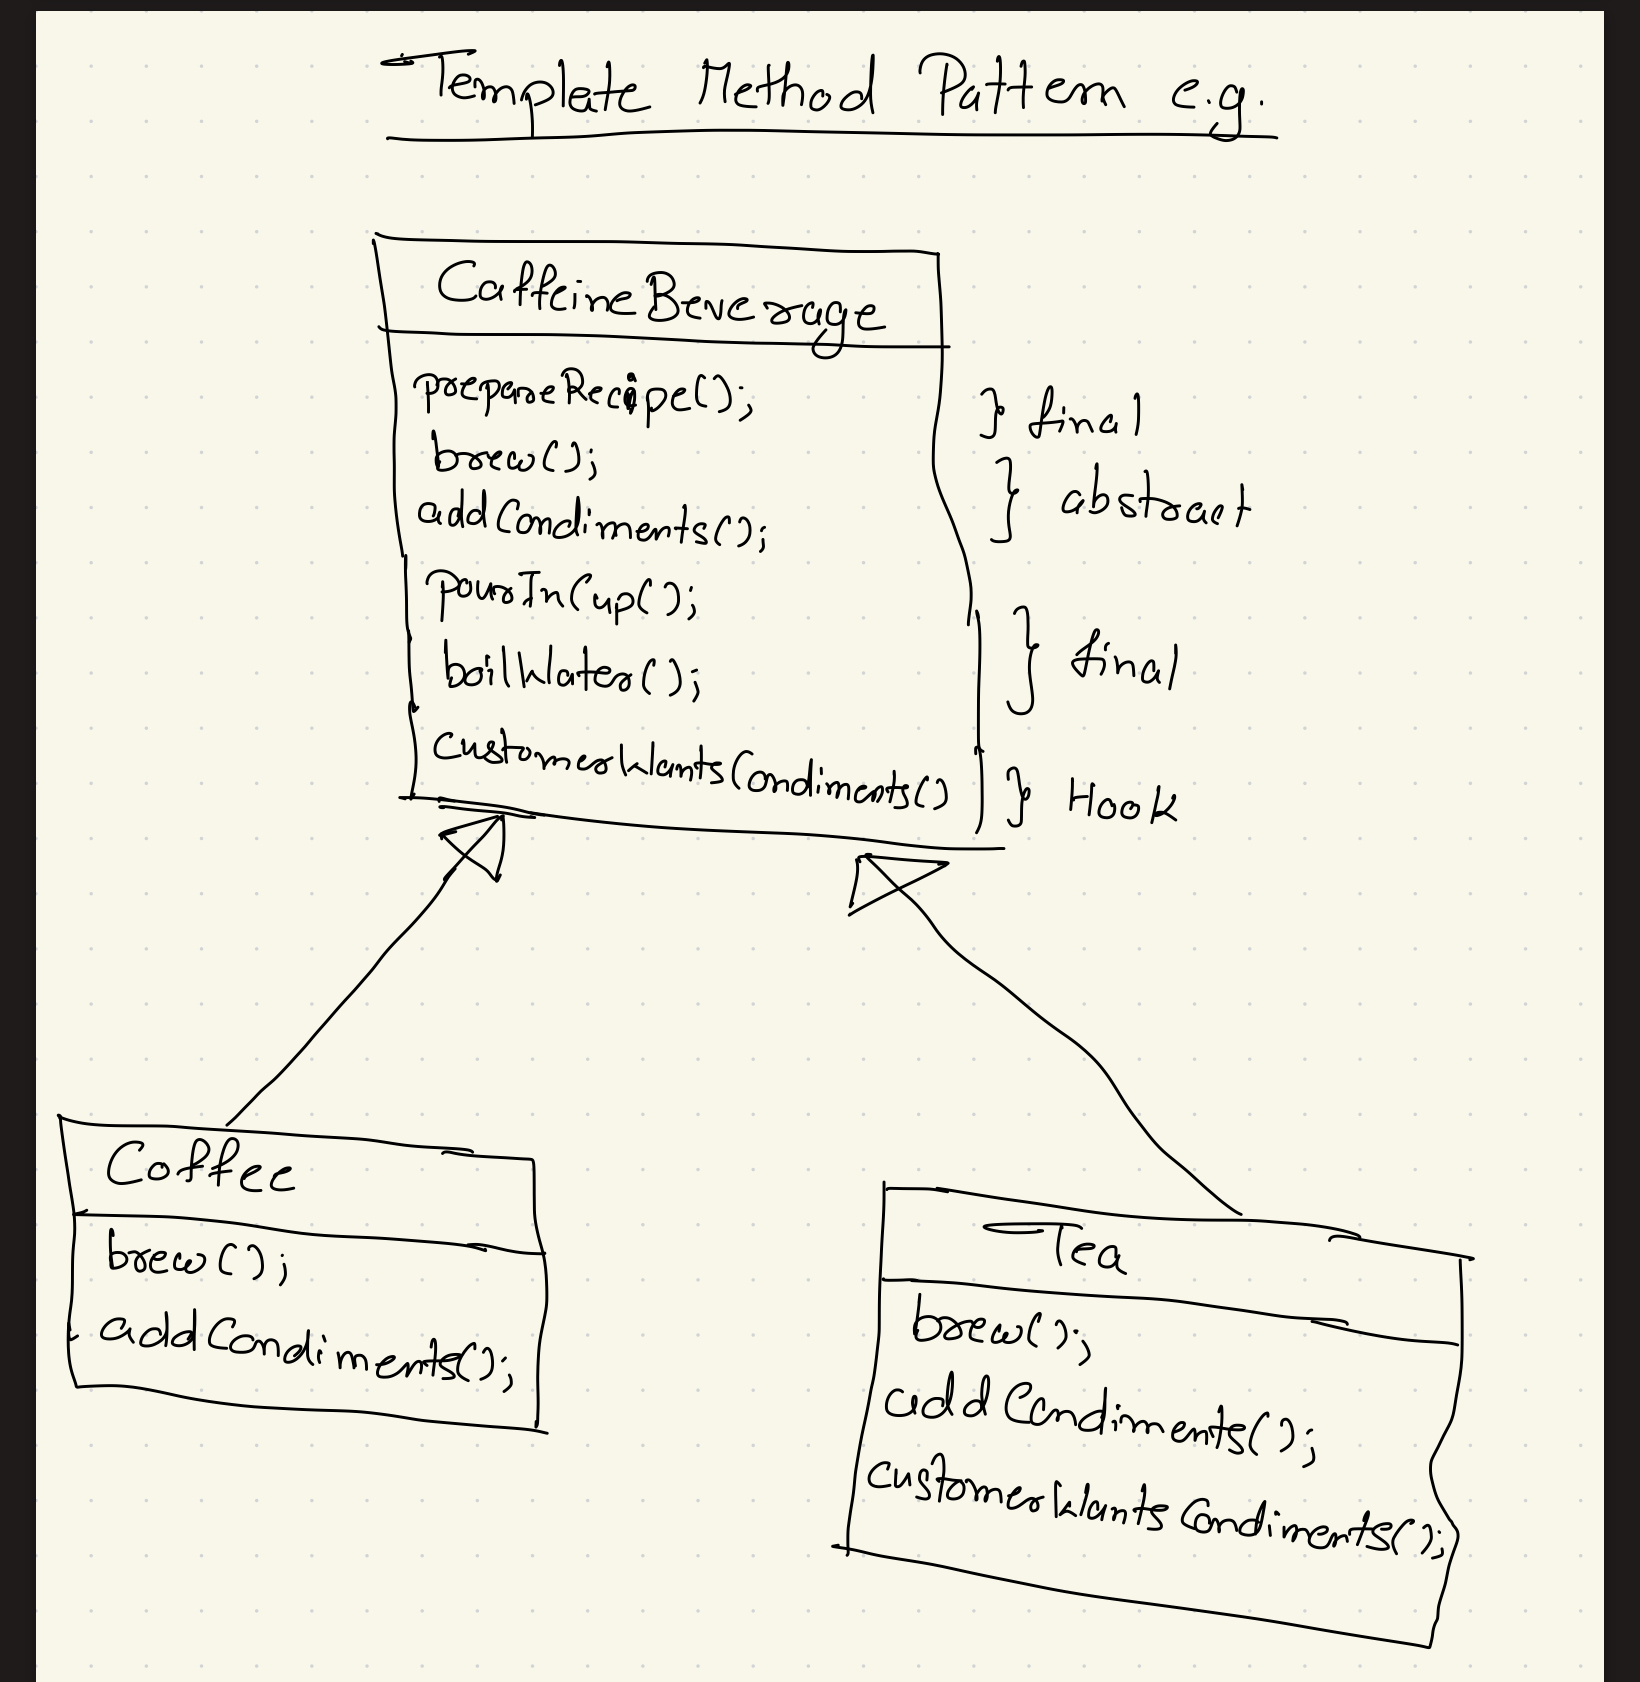 Template Method Pattern e.g.
CaffeineBeverage
prepareRecipe(); } final
brew();
addCondiments(); } abstract
pourInCup();
boilWater(); } final
customerWantsCondiments() } Hook
Coffee
brew();
addCondiments();
Tea
brew();
addCondiments();
customerWantsCondiments();